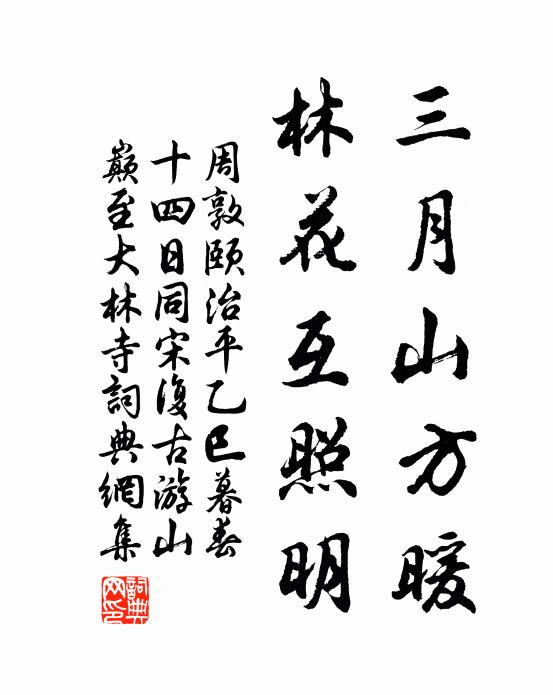 三月山方暖
林花互照明
周敦頤治平乙巳暮春
十四日同宋復古游山
巔至大林寺詞典網集
詞典網印